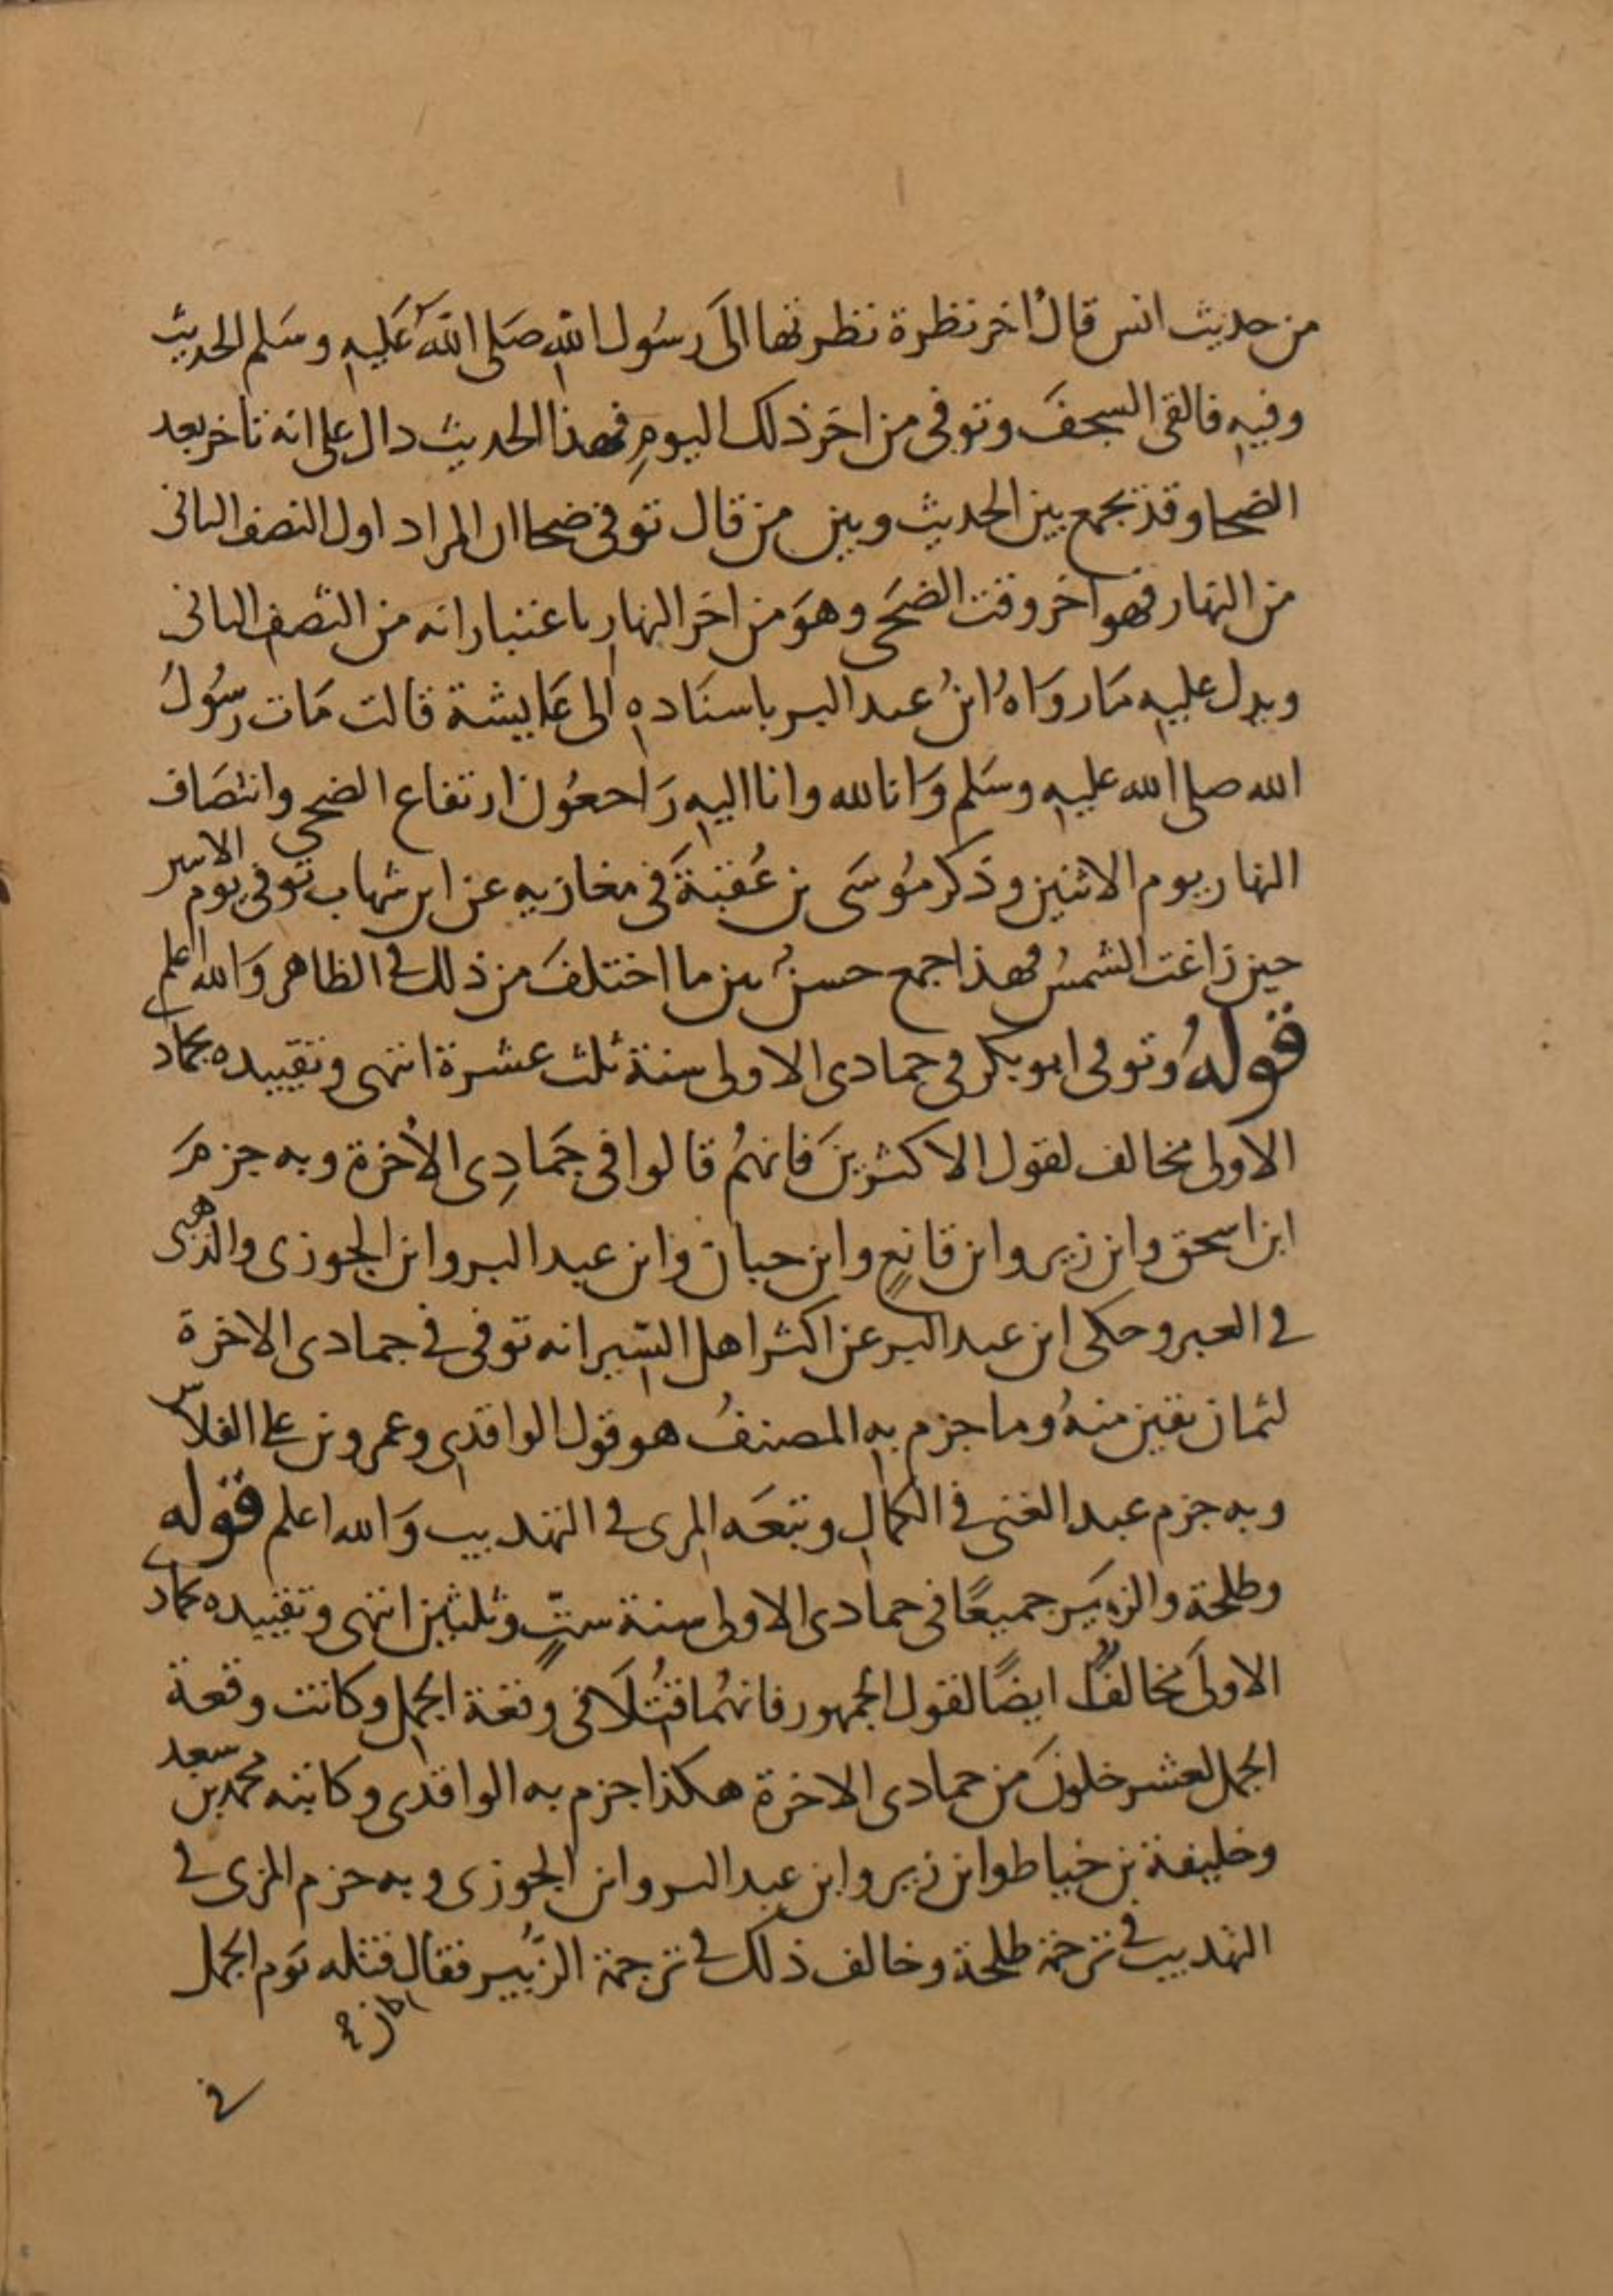 من حديث انس قال اخر نظرة نظرتها الى رسول الله صلى الله عليه وسلم الحديث
وفيه فالقى السجف وتوفى من اخر ذلك اليوم فهذا الحديث دال على انه تاخر بعد
الضحا وقد يجمع بين الحديث وبين من قال توفى ضحا ان المراد اول النصف الثانى
من النهار فهو اخر وقت الضحى وهو من اخر النهار باعتبار انه من النصف الثانى
ويدل عليه ما رواه ابن عبد البر باسناده الى عايشة قالت مات رسول
الله صلى الله عليه وسلم وانا لله وانا اليه راجعون ارتفاع الضحى وانتصاف
النهار يوم الاثنين وذكر موسى بن عقبة في مغازيه عن ابن شهاب توفى يوم الاثنين
حين زاغت الشمس فهذا جمع حسن بين ما اختلف من ذلك في الظاهر والله اعلم
قوله وتوفى ابو بكر في جمادى الاولى سنة ثلث عشرة انتهى وتقييده بجماد
الاولى مخالف لقول الاكثرين فانهم قالوا في جمادى الأخرة وبه جزم
ابن اسحق وابن زبر وابن قانع وابن حبان وابن عبد البر وابن الجوزى والذهبى
في العبر وحكى ابن عبد البر عن اكثر اهل السير انه توفى في جمادى الاخرة
لثمان بقين منه وما جزم به المصنف هو قول الواقدى وعمرو بن على الفلاس
وبه جزم عبد الغنى في الكمال وتبعه المزى في التهذيب والله اعلم قوله
وطلحة والزبير جميعًا في جمادى الاولى سنة ستٍّ وثلثين انتهى وتقييده بجماد
الاولى مخالف ايضًا لقول الجمهور فانهما قتلا في وقعة الجمل وكانت وقعة
الجمل لعشر خلون من جمادى الاخرة هكذا جزم به الواقدى وكاتبه محمد بن سعد
وخليفة بن خياط وابن زبر وابن عبد البر وابن الجوزى وبه جزم المزى في
التهذيب في ترجمة طلحة وخالف ذلك في ترجمة الزبير فقال قتله يوم الجمل
في